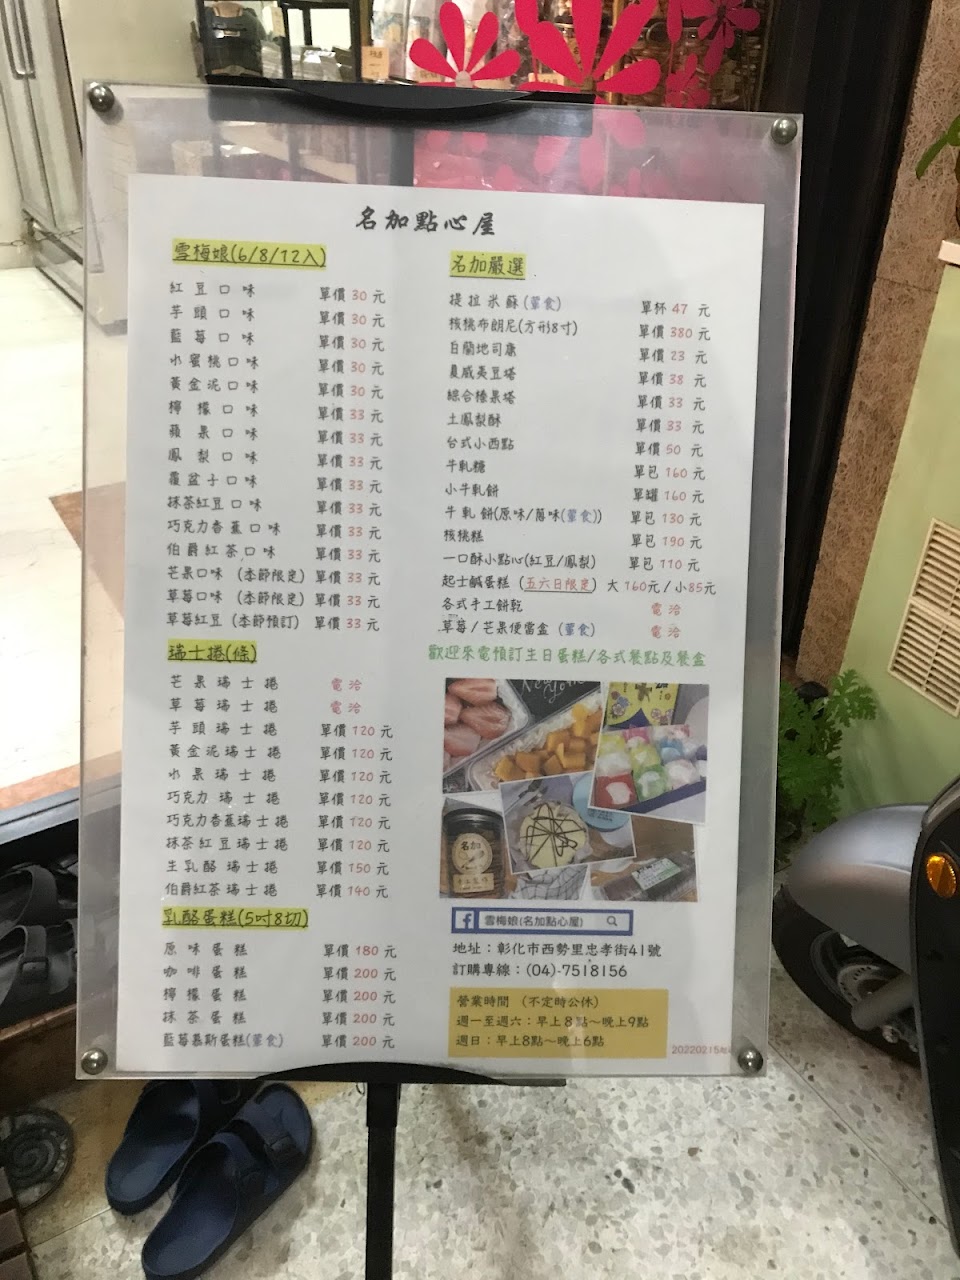 名加點心屋
雪梅娘(6/8/12入)
紅豆口味 單價30元
芋頭口味 單價30元
藍莓口味 單價30元
水蜜桃口味 單價30元
黃金泥口味 單價30元
檸檬口味 單價33元
蘋果口味 單價33元
鳳梨口味 單價33元
覆盆子口味 單價33元
抹茶紅豆口味 單價33元
巧克力香蕉口味 單價33元
伯爵紅茶口味 單價33元
芒果口味 (季節限定) 單價33元
草莓口味 (季節限定) 單價33元
草莓紅豆 (季節預訂) 單價33元
瑞士捲(條)
芒果瑞士捲 電洽
草莓瑞士捲 電洽
芋頭瑞士捲 單價120元
黃金泥瑞士捲 單價120元
水果瑞士捲 單價120元
巧克力瑞士捲 單價120元
巧克力香蕉瑞士捲 單價120元
抹茶紅豆瑞士捲 單價120元
生乳酪瑞士捲 單價150元
伯爵紅茶瑞士捲 單價140元
乳酪蛋糕(5吋8切)
原味蛋糕 單價180元
咖啡蛋糕 單價200元
檸檬蛋糕 單價200元
抹茶蛋糕 單價200元
藍莓慕斯蛋糕(葷食) 單價200元
名加嚴選
提拉米蘇(葷食) 單杯47元
核桃布朗尼(方形8寸) 單價380元
白蘭地司康 單價23元
夏威夷豆塔 單價38元
綜合榛果塔 單價33元
土鳳梨酥 單價33元
台式小西點 單價50元
牛軋糖 單包160元
小牛軋餅 單罐160元
牛軋餅(原味/蔥味(葷食)) 單包130元
核桃糕 單包190元
一口酥小點心(紅豆/鳳梨) 單包110元
起士鹹蛋糕 (五六日限定) 大160元/小85元
各式手工餅乾 電洽
草莓/芒果便當盒 (葷食) 電洽
歡迎來電預訂生日蛋糕/各式餐點及餐盒
名加
雪梅娘(名加點心屋)
地址：彰化市西勢里忠孝街41號
訂購專線：(04)-7518156
營業時間 (不定時公休)
週一至週六：早上8點～晚上9點
週日：早上8點～晚上6點
20220215